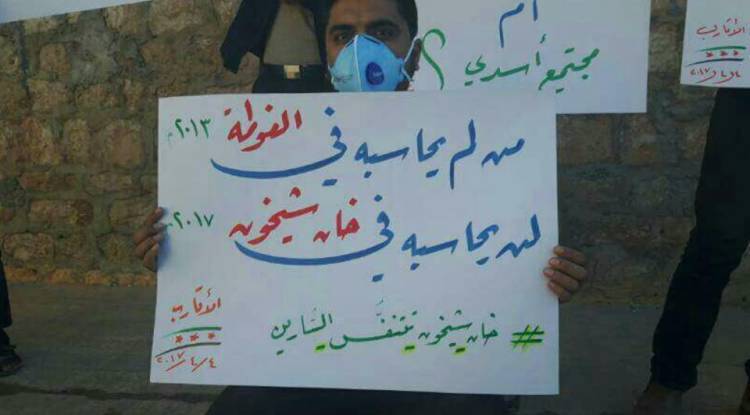 أم
مجتمع أسدي
الأتارب
٢٠١٧/٤/٤
من لم يحاسبه في الغوطة ٢٠١٣م
لن يحاسبه في خان شيخون ٢٠١٧م
# خان_شيخون_تتنفَّس_السَّارين
الأتارب
٢٠١٧/٤/٤